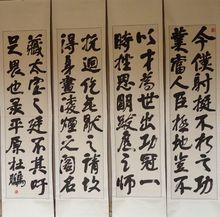 今僕射挺不朽之功
業當人臣極地豈不
以才為世出功冠一
時挫思明跋扈之師
抗迴紇無厭之請故
得身畫凌煙之閣名
藏太室之廷其吁
足畏也平原杜鵬